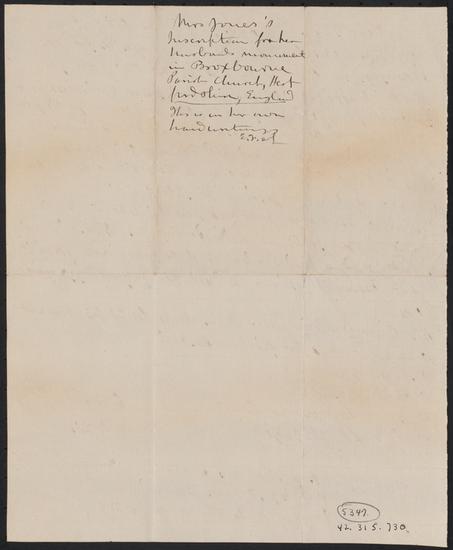 Mrs Jones's
Inscription for her
husbands monument
in Broxbourne
Parish Church, Hert
fordshire, England
This is in her own
handwriting
5347.
42.315.730